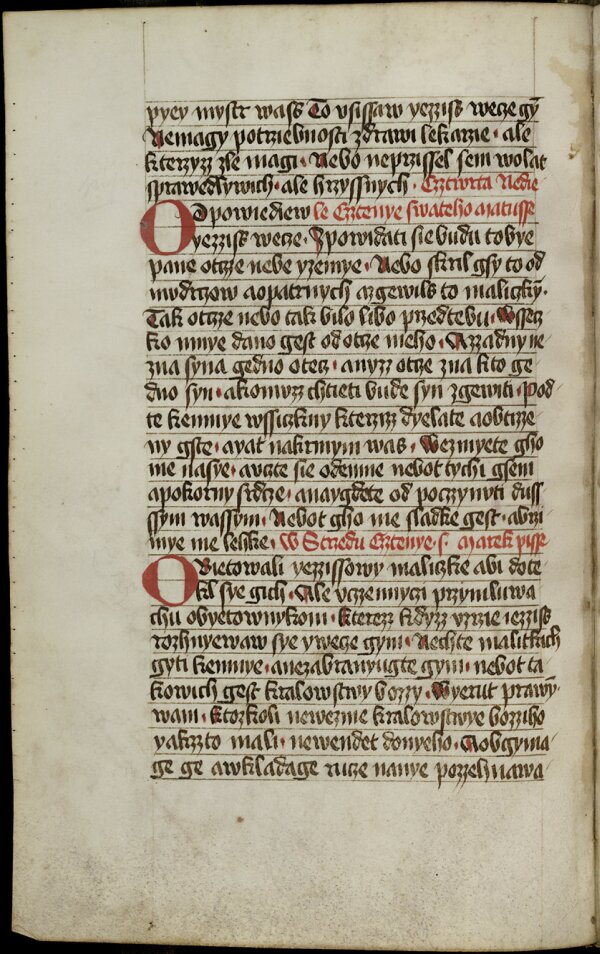 pyey mystr wass To vslissaw yezziss wecze gȳ
Nemagy potrziebnosti zdrawi lekarzie · ale
kterzyz zle magi · Nebo neprzissel sem wolat
sprawedlywich · ale hrzyssnych · Cztwrta Nedie
Odpowiediew le Cztenye swateho Matusse
yezziss wecze · Zpowidati sie budu tobye
pane otcze nebe yzemye · Nebo skril gsy to od
mudrzow aopatrnych azgewils to maliczkẏ·
Tak otcze nebo tak bilo libo przedtebu · Wssecz
ko mnye dano gest od otcze meho · Azzadny ne
zna syna gedno otecz · anyzz otcze zna kto ge
dno syn · akomuzz chtieti bude syn zgewiti · Pod
te kemnye wssiczkny kterzizz dyelate aobtieze
ny gste · ayat nakrmym was · Wezmyete gho
me nasye · auczte sie odemne nebot tychi gsem
apokorny srdcze · anaygdete od poczynuti duss
ssym wassym · Nebot gho me sladke gest · abrzi
mye me lehke · W Strzedu Cztenye · s · Marek pisse
Obietowali yezzissowy maliczke abi dote
kl sye gich · Ale vczemnyczi przymluwa
chu obyetownykom · Kterezz kdyzz vzrzie iezziss
rozhnyewaw sye ywecze gym · Nechte malitkich
gyti kemnye · anezabranyugte gym · nebot ta
kowich gest kralowstwy bozzy · Wyerut prawȳ
wam · Ktozkoli newezme kralowstwye bozziho
yakzzto mali · newendet donyeho · Aobgyma
ge ge awkladage rucze nanye pozzehnawa